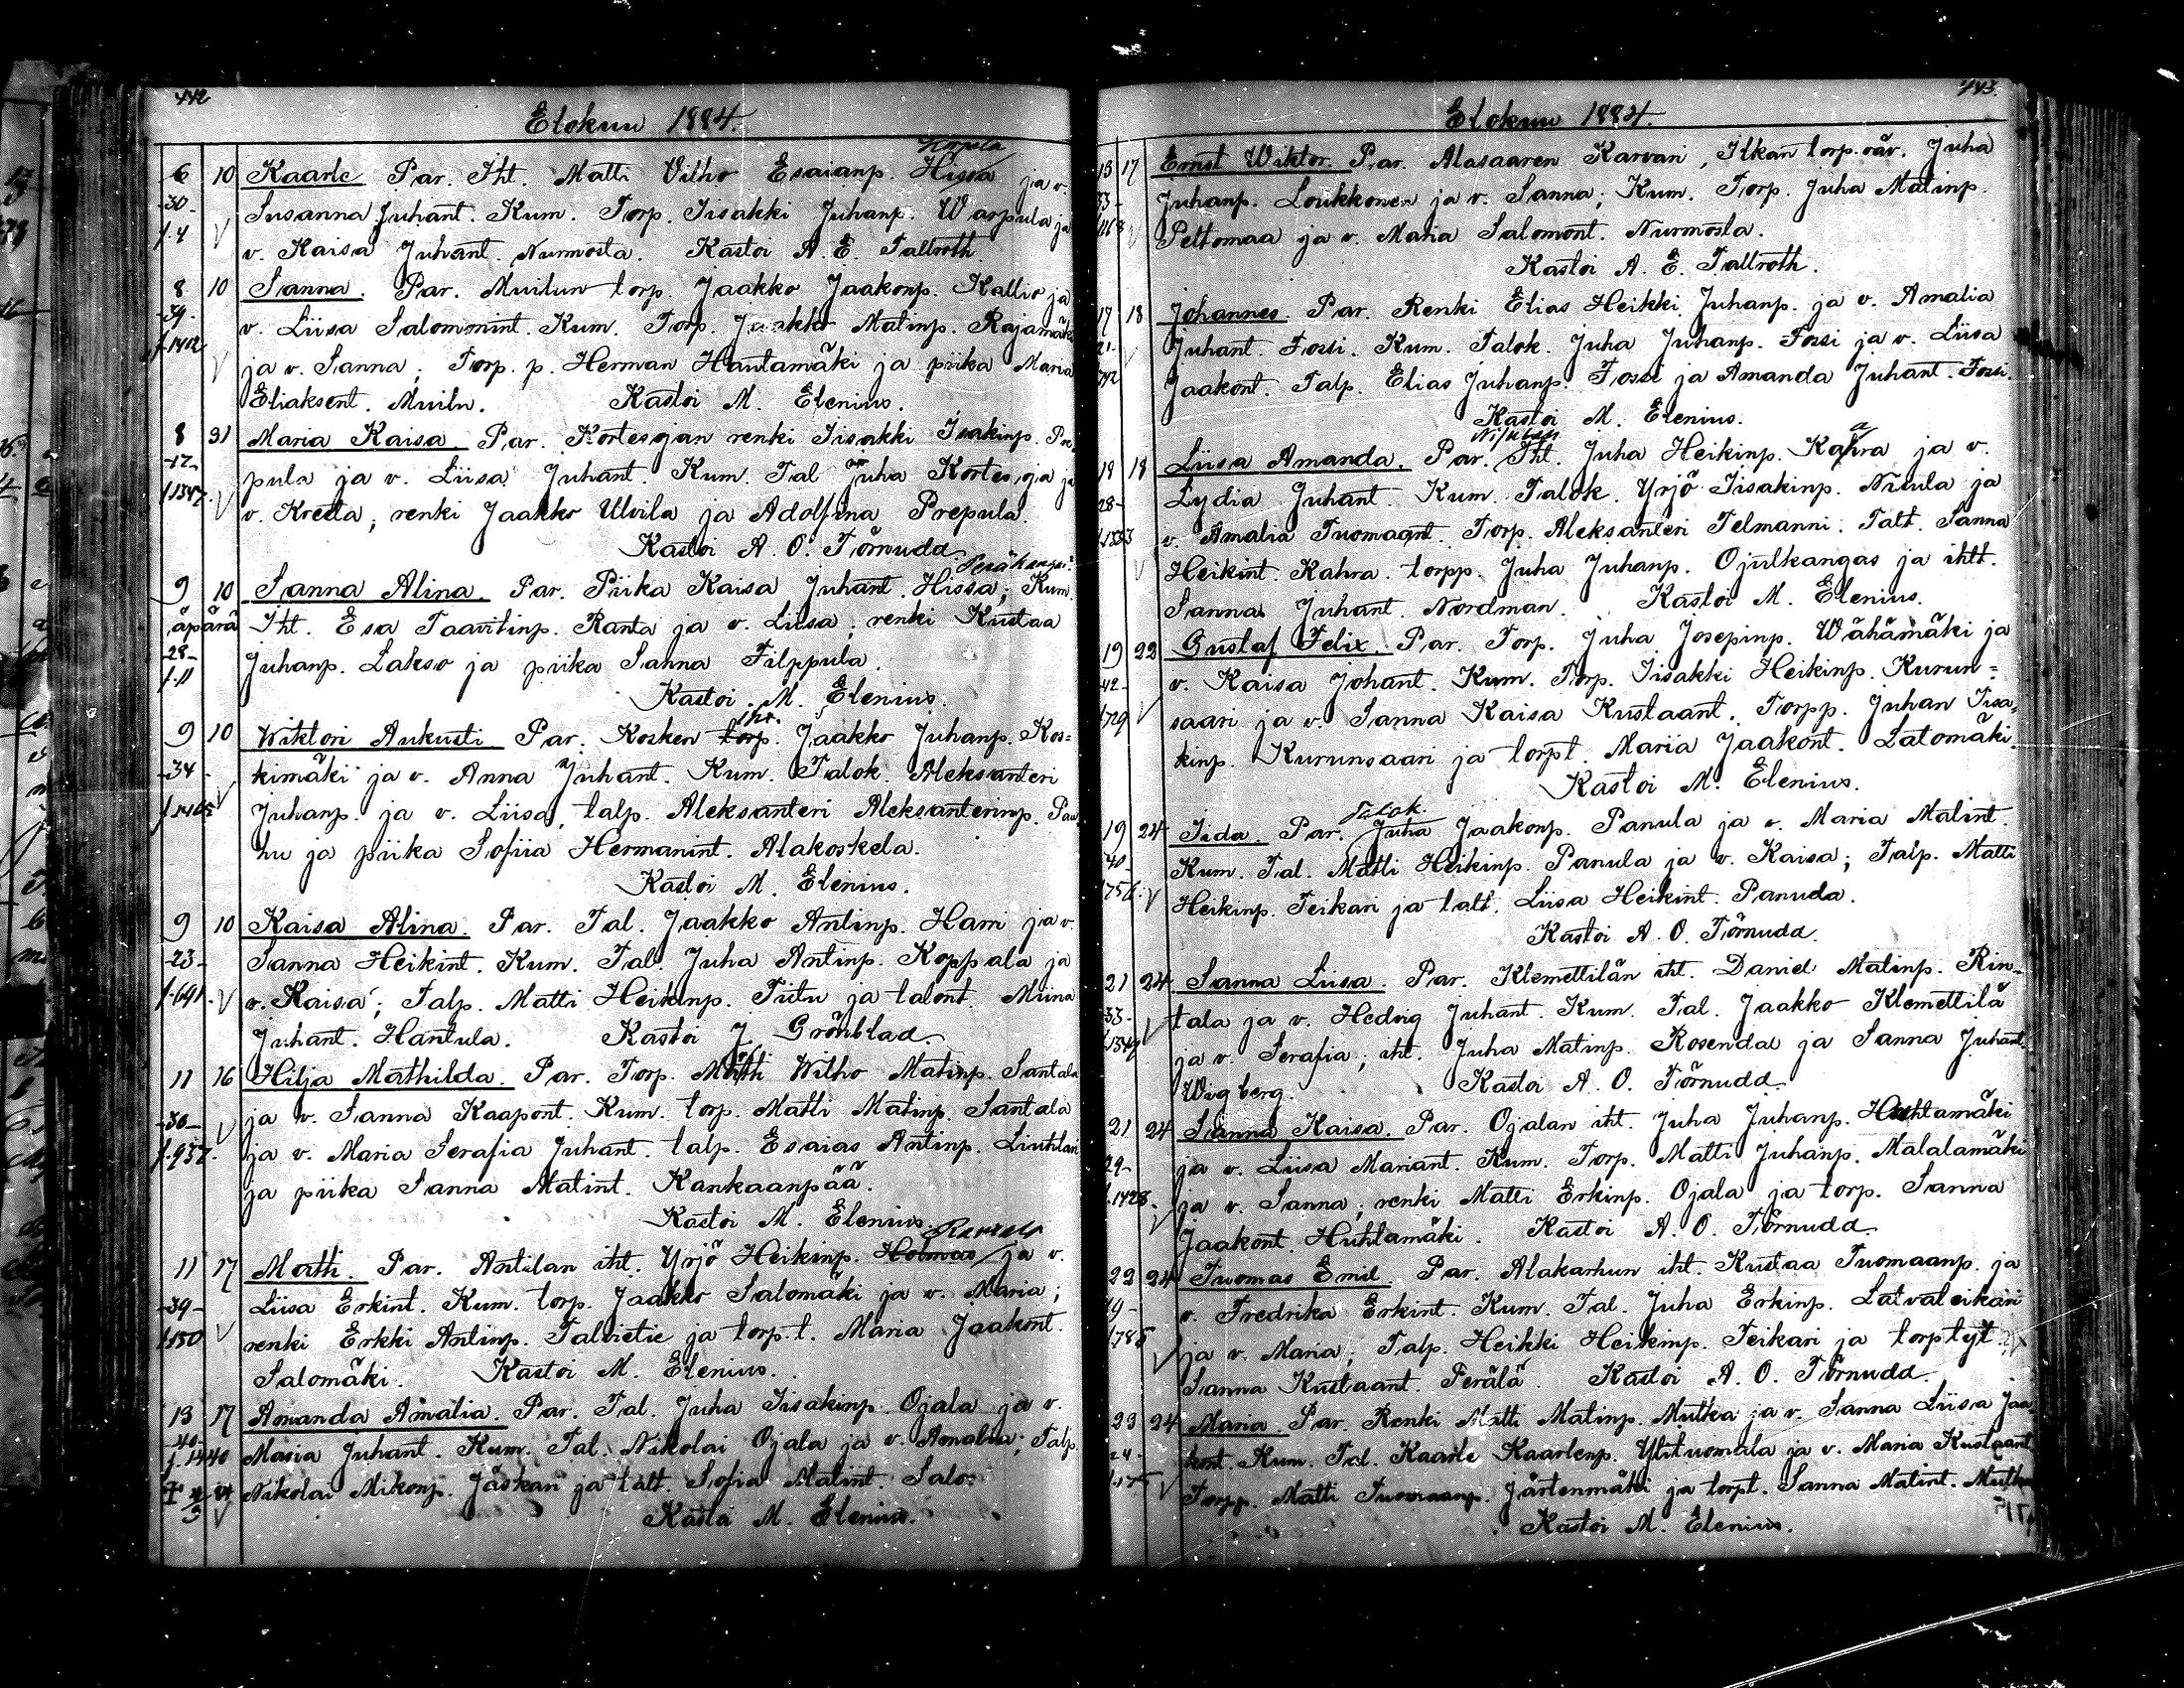 442
Elokuu 1884.
Hopsla
6 10 Kaarle Par. Iht. Matti Vilho Esaianp. Hissa ja v.
-30- Susanna Juhant. Kum. Torp. Iisakki Juhanp. Warpula ja
f.4 v. Kaisa Juhant. Nurmosta. Kastoi A. E. Talbroth.
8 10 Sanna. Par. Muilun torp. Jaakko Jaakonp. Kallio ja
-39- v. Liisa Salommint. Kum. Torp. Jaakko Matinp. Rajamäki
f.1412 ja v. Sanna; Torp. p. Herman Hantamäki ja piika Maria
Eliaksent. Muilu. Kastoi M. Elenius.
8 31 Maria Kaisa Par. Kortesojan renki Iisakki Isakinp. Pre
-17- pula ja v. Liisa Juhant. Kum. Tal Juha Kortesoja ja
f.1347. v. Kreeta; renki Jaakko Ulvila ja Adolfina Prepula.
Kastoi A. O. Törnudd.
Peräkangas
9 10 Sanna Alina. Par. Piika Kaisa Juhant. Hissa; Kum.
äpärä Iht. Esa Taavitinp. Ranta ja v. Liisa; renki Kustaa
-28- Juhanp. Lakso ja piika Sanna Filppula.
f.11 Kastoi M. Elenius.
iht.
9 10 Wiktori Aukusti Par. Kosken torp. Jaakko Juhanp. Kos=
-34- kimäki ja v. Anna Juhant. Kum. Talok. Aleksanteri
f.1405 Juhanp. ja v. Liisa, talp. Aleksanteri Aleksanterinp. Pau
hu ja piika Sofiia Hermanint. Alakoskela.
Kastoi M. Elenius.
9 10 Kaisa Alina. Par. Tal. Jaakko Antinp. Harri ja v
-23- Sanna Heikint. Kum. Tal. Juha Antinp. Koppala ja
f.691. v. Kaisa; Talp. Matti Heikinp. Tiitu ja talont. Miina
Juhant. Hantula. Kastoi J. Grönblad.
11 16 Hilja Mathilda. Par. Torp. Matti Wilho Matinp. Santala
-30- ja v. Sanna Kaapont. Kum. torp. Matti Matinp. Santala
f.957. ja v. Maria Serafia Juhant. talp. Esaias Antinp. Liuhtari
ja piika Sanna Matint. Kankaanpää.
Kastoi M. Elenius.
Rantala
11 17 Matti. Par. Antilan iht. Yrjö Heikinp. Holmas ja v.
-39- Liisa Erkint. Kum. torp. Jaakko Salomäki ja v. Maria;
f.150 renki Erkki Antinp. Talvitie ja torp.t. Maria Jaakont.
Salomäki. Kastoi M. Elenius.
13 17 Amanda Amalia. Par. Tal. Juha Iisakinp. Ojala ja v.
-40-
f.1440 Maria Juhant. Kum. Tal. Nikolai Ojala ja v. Amalia; Talp.
Nikolai Mikonp. Jäskari ja talt. Sofia Matint. Salo.
Kastoi M. Elenius.
443.
Elokuu 1884.
13 17 Ernst Wiktor. Par. Alasaaren Karvari, Ilkan torp. väv. Juha
33- Juhanp. Loukkonen ja v. Sanna; Kum. Torp. Juha Matinp.
Peltomaa ja v. Maria Salomont. Nurmosta.
Kastoi A. E. Tallroth.
17 18 Johannes. Par. Renki Elias Heikki Juhanp. ja v. Amalia
21- Juhant. Fossi. Kum. Talok. Juha Juhanp. Fossi ja v. Liisa
Jaakont. Talp. Elias Juhanp. Fossi ja Amanda Juhant. Fossi.
Kastoi M. Elenius.
18 18 Liisa Amanda. Par. Iht. Juha Heikinp. Kahra ja v.
28- Lydia Juhant. Kum. Talok. Yrjö Iisakinp. Niiula ja
v. Amalia Tuomaant. Torp. Aleksanteri Telmanni. Talt. Sanna
Heikint. Kahra. torpp. Juha Juhanp. Ojulkangas ja ihtt.
Sanna Juhant. Nordman. Kastoi M. Elenius.
19 22 Gustaf Felix. Par. Torp. Juha Josepinp. Wähämäki ja
42- v. Kaisa Johant. Kum. Torp. Iisakki Heikinp. Kurun=
729 saari ja v. Sanna Kaisa Kustaant. Torpp. Juhan Iisa=
kinp. Kurunsaari ja torpt. Maria Jaakont. Latomäki.
Kastoi M. Elenius.
Talok.
19 24 Iida. Par. Juha Jaakonp. Panula ja v. Maria Matint.
40- Kum. Tal. Matti Heikinp. Panula ja v. Kaisa; Talp. Matti
756. Heikinp. Teikari ja talt. Liisa Heikint. Panuda.
Kastoi A. O. Törnudd.
21 24 Sanna Liisa. Par. Klemettilän iht. Daniel Matinp. Rin=
33- tala ja v. Hedvig Juhant. Kum. Tal. Jaakko Klemettilä
ja v. Serafia; iht. Juha Matinp. Rosendal ja Sanna Juhant.
Wigberg. Kastoi A. O. Törnudd.
21 24 Sanna Kaisa. Par. Ojalan iht. Juha Juhanp. Huhtamäki
29- ja v. Liisa Mariant. Kum. Torp. Matti Juhanp. Malalamäki
f.1428. ja v. Sanna; renki Matti Erkinp. Ojala ja torp. Sanna
Jaakont. Huhtamäki. Kastoi A. O. Törnudd.
22 24 Tuomas Emil. Par. Alakarhun iht. Kustaa Tuomaanp. ja
v. Fredrika Erkint. Kum. Tal. Juha Erkinp. Latvateikari
785 ja v. Maria; Talp. Heikki Heikinp. Teikari ja torptyt
Sanna Kustaant. Perälä. Kastoi A. O. Törnudd.
23 24 Maria Par. Renki Matti Matinp. Mutka ja v. Sanna Liisa Jaa
24- kont. Kum. Tal. Kaarle Kaarlenp. Ylituomala ja v. Maria Kustaant
Torpp. Matti Tuomaanp. Järtenmäki ja torpt. Sanna Matint. Mutka
Kastoi M. Elenius.